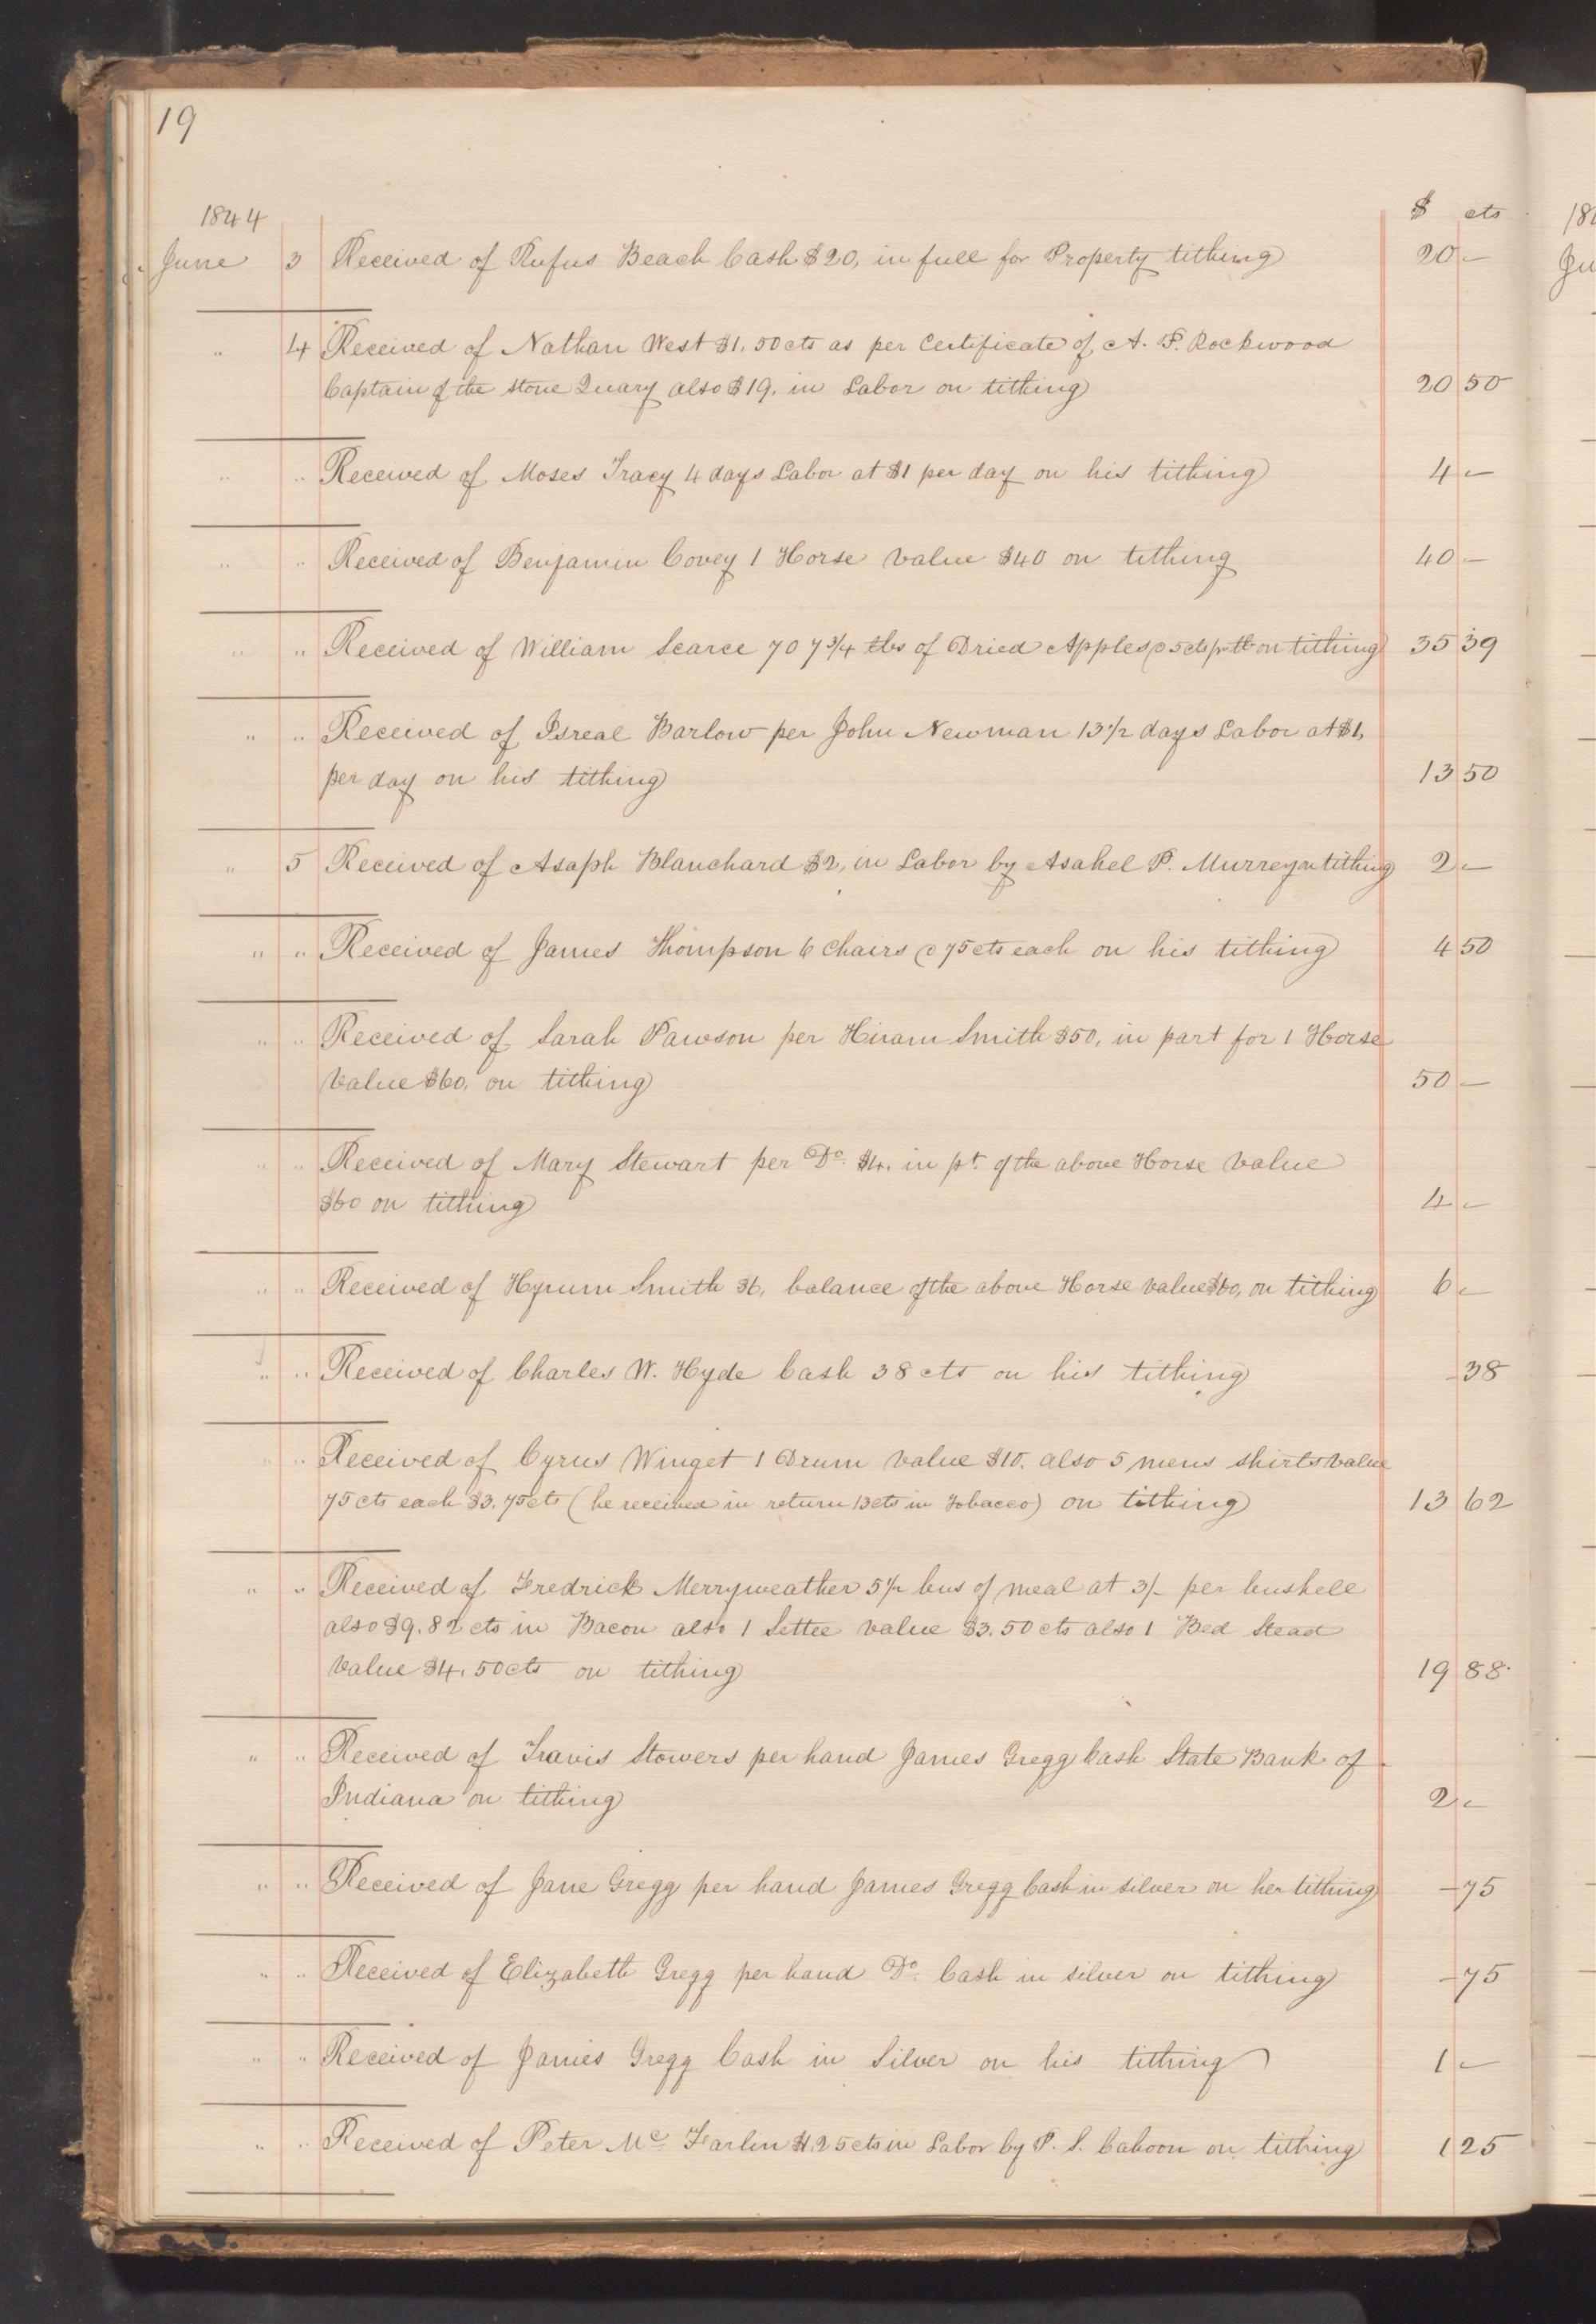 19
1844 $ cts
June 3 Received of Rufus Beach Cash $20, in full for Property tithing 20 -
" 4 Received of Nathan West $1.50cts as per Certificate of A. P. Rockwood
Captain of the stone Quary also $19. in Labor on tithing 20 50
" " Received of Moses Tracy 4 days Labor at $1 per day on his tithing 4 -
" " Received of Benjamin Covey 1 Horse value $40 on tithing 40 -
" " Received of William Scarce 707 3/4 lbs of Dried Apples @ 5cts pr lb on tithing 35 39
" " Received of Isreal Barlow per John Newman 13 1/2 days Labor at $1,
per day on his tithing 13 50
" 5 Received of Asaph Blanchard $2, in Labor by Asahel P. Murrey on tithing 2 -
" " Received of James Thompson 6 Chairs @ 75cts each on his tithing 4 50
" " Received of Sarah Pawson per Hiram Smith $50, in part for 1 Horse
value $60, on tithing 50 -
" " Received of Mary Stewart per Do. $4. in pt. of the above Horse value
$60 on tithing 4 -
" " Received of Hyrum Smith $6, balance of the above Horse value $60, on tithing 6 -
" " Received of Charles W. Hyde Cash 38 cts on his tithing - 38
" " Received of Cyrus Winget 1 Drum value $10. also 5 mens shirts value
75 cts each $3.75cts (he received in return 13cts in Tobacco) on tithing 13 62
" " Received of Fredrick Merryweather 5 1/2 bus of meal at 3/- per bushell
also $9.82 cts in Bacon also 1 Settee value $3.50 cts also 1 Bed Stead
value $4.50cts on tithing 19 88
" " Received of Travis Stowers per hand James Gregg Cash State Bank of
Indiana on tithing 2 -
" " Received of Jane Gregg per hand James Gregg Cash in silver on her tithing - 75
" " Received of Elizabeth Gregg per hand Do. Cash in silver on tithing - 75
" " Received of James Gregg Cash in Silver on his tithing 1 -
" " Received of Peter Mc Farlin $1.25cts in Labor by P. S. Cahoon on tithing 1 25